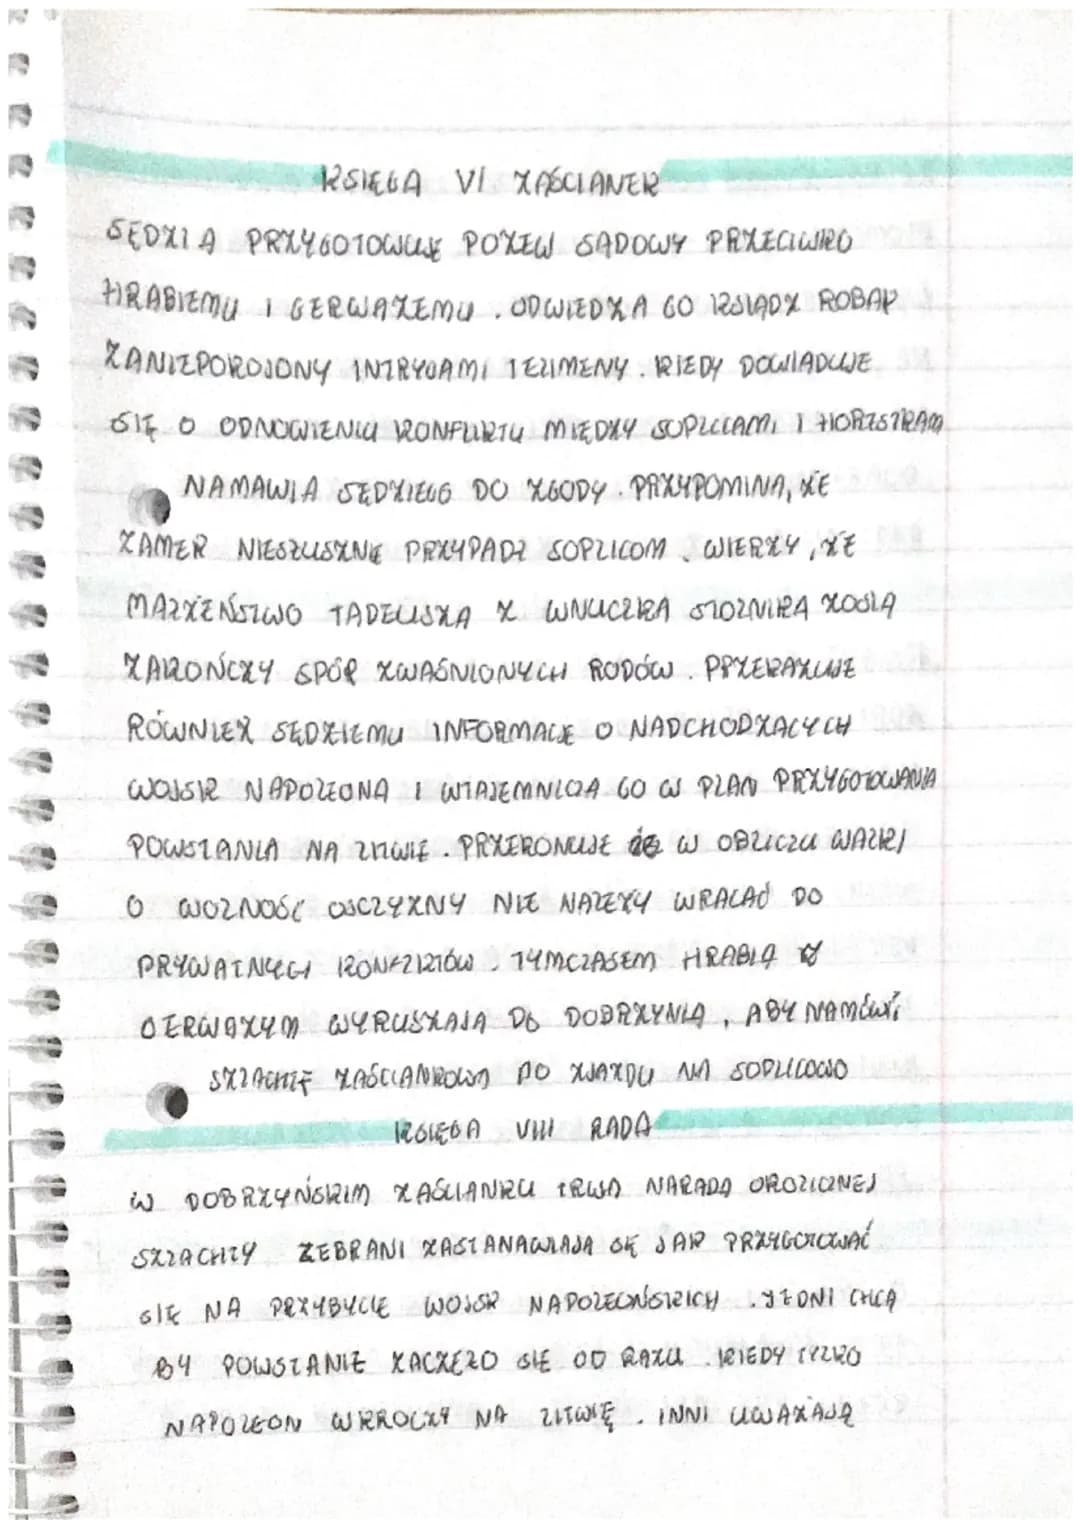 KSIĘGA VI ZAŚCIANEK
SĘDZIA PRZYGOTOWUJE POZEW SĄDOWY PRZECIWKO
HRABIEMU I GERWAZEMU. ODWIEDZA GO KSIĄDZ ROBAK
ZANIEPOKOJONY INTRYGAMI TELIMENY. KIEDY DOWIADUJE
SIĘ O ODNOWIENIU KONFLIKTU MIĘDZY SOPLICAMI I HORESZKAMI
NAMAWIA SĘDZIEGO DO ZGODY. PRZYPOMINA, ŻE
ZAMEK NIESŁUSZNIE PRZYPADŁ SOPLICOM. WIERZY, ŻE
MAŁŻEŃSTWO TADEUSZA Z WNUCZKĄ STOLNIKA ZOSIĄ
ZAKOŃCZY SPÓR ZWAŚNIONYCH RODÓW. PRZEKAZUJE
RÓWNIEŻ SĘDZIEMU INFORMACJE O NADCHODZĄCYCH
WOJSK NAPOLEONA I WTAJEMNICZA GO W PLAN PRZYGOTOWANIA
POWSTANIA NA LITWIE. PRZEKONUJE ŻE W OBLICZU WALKI
O WOLNOŚĆ OJCZYZNY NIE NALEŻY WRACAĆ DO
PRYWATNYCH KONFLIKTÓW. TYMCZASEM HRABIA Z
GERWAZYM WYRUSZAJĄ DO DOBRZYNIA, ABY NAMÓWIĆ
SZLACHTĘ ZAŚCIANKOWĄ DO ZJAZDU NA SOPLICOWO
KSIĘGA VIII RADA
W DOBRZYŃSKIM ZAŚCIANKU TRWA NARADA OKOLICZNEJ
SZLACHTY ZEBRANI ZASTANAWIAJĄ SIĘ JAK PRZYGOTOWAĆ
SIĘ NA PRZYBYCIE WOJSK NAPOLEOŃSKICH. JEDNI CHCĄ
BY POWSTANIE ZACZĘŁO SIĘ OD RAZU. KIEDY TYLKO
NAPOLEON WKROCZY NA LITWIĘ. INNI UWAŻAJĄ